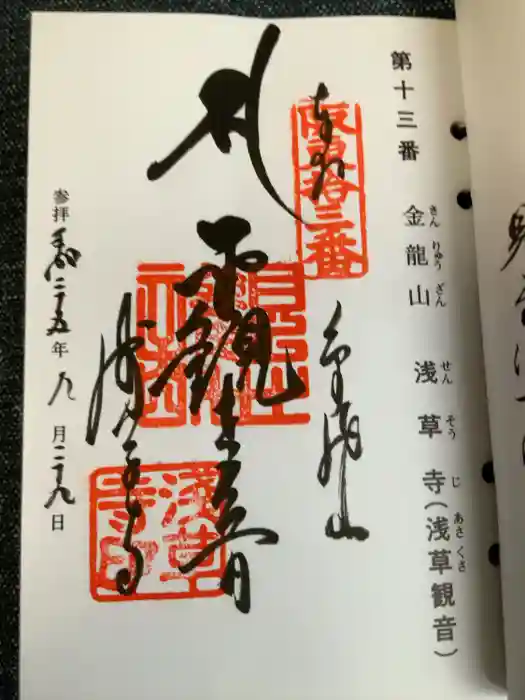 第十三番 金龍山 浅草寺(浅草観音)
きん りゅう ざん せん そう じ あさ くさ
奉拝
阪東拾三番
金龍山
聖観世音
浅草寺
参拝 平成二十五年 九月二十九日